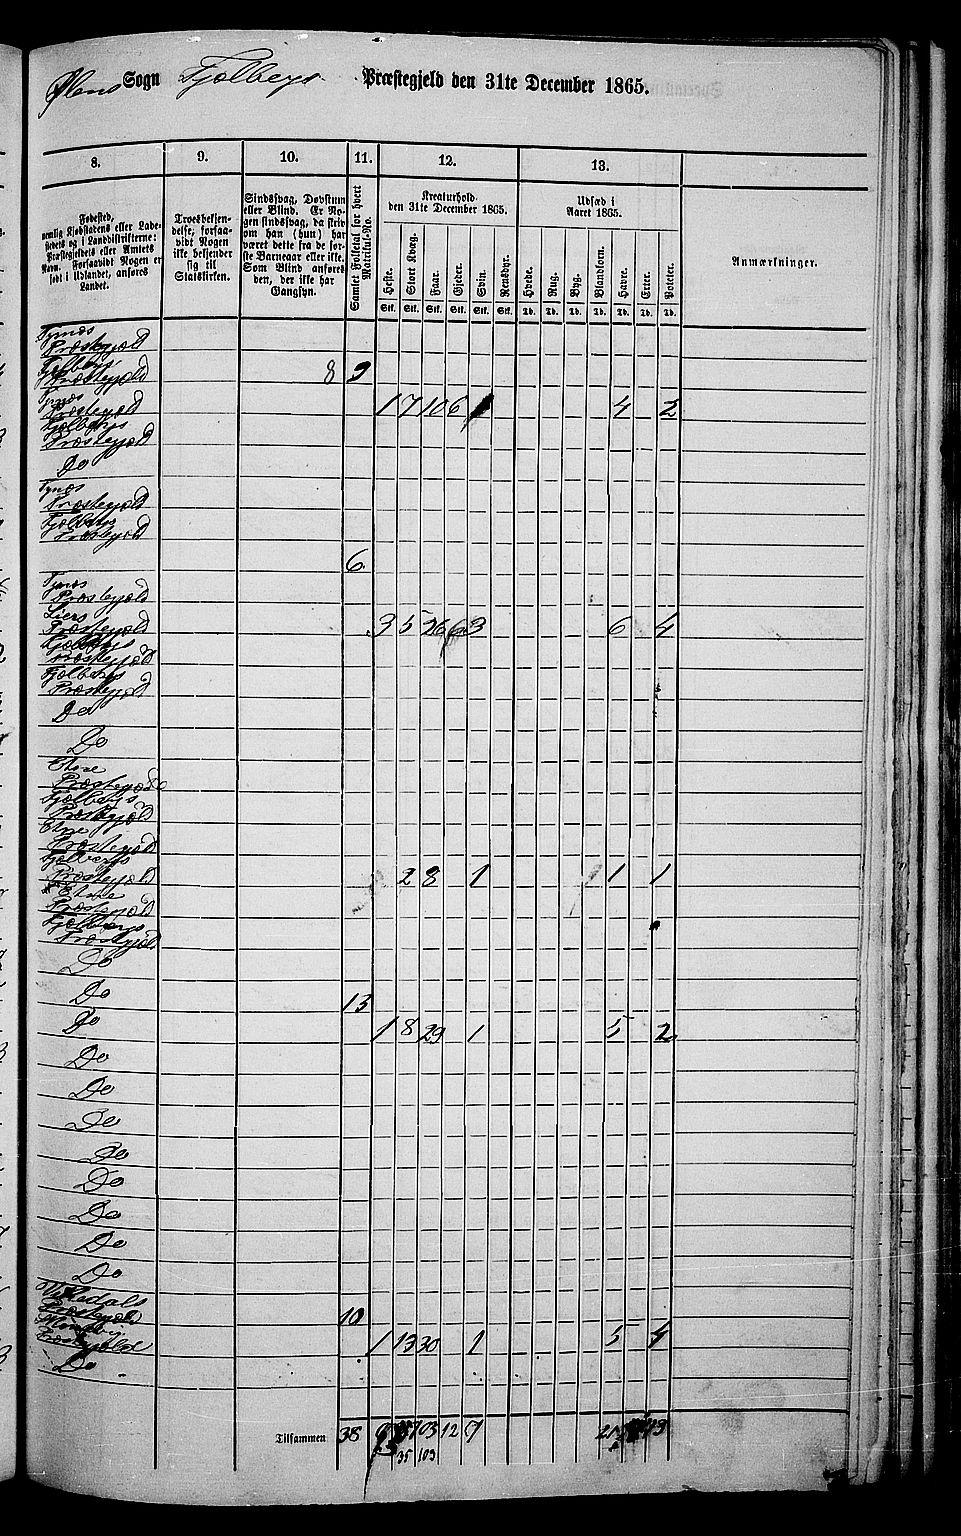 Ølens Sogn Fjelbergs Præstegjeld den 31te December 1865.
8. 9. 10. 11. 12. 13.
Fødested,
nemlig Kjøbstadens eller Lade-
stedets og i Landdistrikterne:
Præstegjeldets eller Amtets
Navn. Forsaavidt Nogen er
født i Udlandet, anføres
Landet.
Troesbekjen-
delse, forsaa-
vidt Nogen
ikke bekjender
sig til
Statskirken.
Sindssvag, Døvstum
eller Blind. Er No-
gen sindssvag, da skriv
om han (hun) har
været dette fra de før-
ste Barneaar eller ikke.
Som Blind anføres
den, der ikke har
Gangsyn.
Samlet Folketal for hvert
Matrikul-No.
Kreaturhold
den 31te December 1865.
Udsæd i
Aaret 1865.
Anmærkninger.
Heste. Stort Kvæg. Faar. Gjeder. Sviin. Rensdyr. Hvede. Rug. Byg. Blandkorn. Havre. Erter. Poteter.
Stk. Stk. Stk. Stk. Stk. Stk. Td. Td. Td. Td. Td. Td. Td.
Tysnæs
Præstegjeld
Fjelbergs
Præstegjeld 8 9
Tysnæs
Præstegjeld 1 7 10 6 4 2
Fjelbergs
Præstegjeld
Do
Tysnæs
Præstegjeld
Fjelbergs
Præstegjeld
6
Tysnæs
Præstegjeld
Præstegjeld 3 5 26 6 3 6 4
Fjelbergs
Præstegjeld
Fjelbergs
Præstegjeld
Do
Do
Etne
Præstegjeld
Fjelbergs
Præstegjeld
Etne
Præstegjeld
Fjelbergs
Præstegjeld 2 8 1 1 1
Etne
Præstegjeld
Fjelbergs
Præstegjeld
Do
Do 13
Do 1 8 29 1 5 2
Do
Do
Do
Do
Do
Do
Do
Do
Vikedals
Præstegjeld 10
Præstegjeld 1 13 30 1 5 4
Do
Tilsammen 38 103 12 7 13
35 103